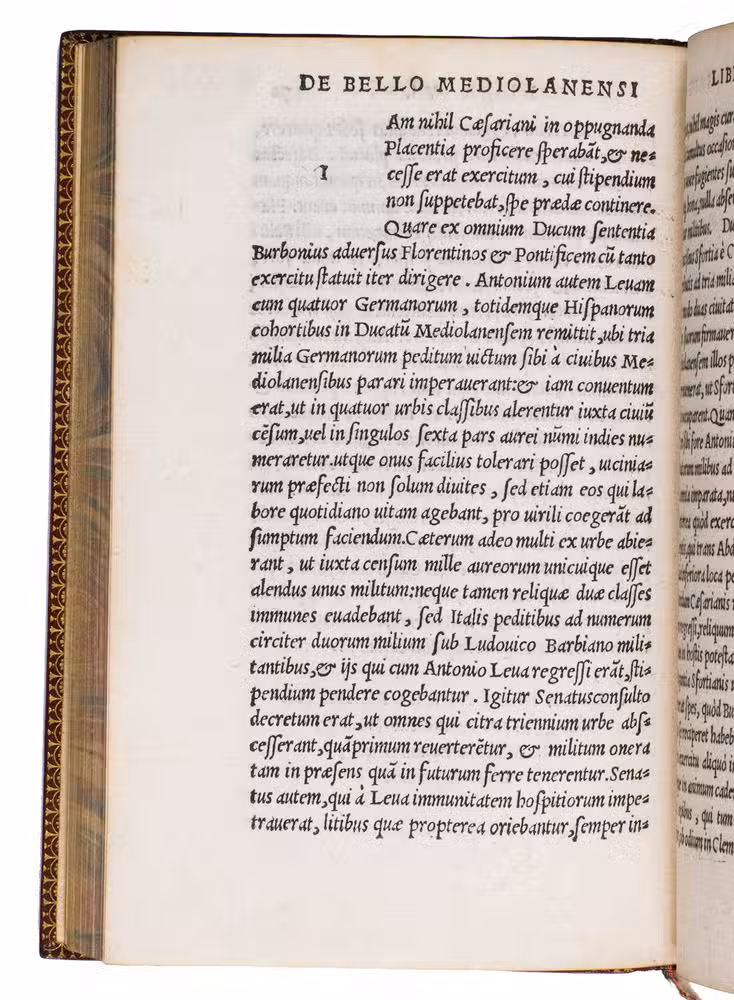 DE BELLO MEDIOLANENSI
Am nihil Cæſariani in oppugnanda
Placentia proficere ſperabāt,& ne⸗
I
ceſſe erat exercitum, cui ſtipendium
non ſuppetebat,ſpe prædæ continere.
Quare ex omnium Ducum ſententia
Burbonius aduerſus Florentinos & Pontificem cū tanto
exercitu ſtatuit iter dirigere. Antonium autem Leuam
cum quatuor Germanorum, totidemque Hiſpanorum
cohortibus in Ducatū Mediolanenſem remittit,ubi tria
milia Germanorum peditum uictum ſibi à ciuibus Me⸗
diolanenſibus parari imperauerant:& iam conuentum
erat,ut in quatuor urbis claſſibus alerentur iuxta ciuiū
cēſum,uel in ſingulos ſexta pars aurei nūmi indies nu⸗
meraretur.utque onus facilius tolerari poſſet, uicinia⸗
rum præfecti non ſolum diuites, ſed etiam eos qui la⸗
bore quotidiano uitam agebant, pro uirili coegerāt ad
ſumptum faciendum.Cæterum adeo multi ex urbe abie⸗
rant, ut iuxta cenſum mille aureorum unicuique eſſet
alendus unus militum:neque tamen reliquæ duæ claſſes
immunes euadebant, ſed Italis peditibus ad numerum
circiter duorum milium ſub Ludouico Barbiano mili⸗
tantibus,& ijs qui cum Antonio Leua regreſſi erāt,ſti⸗
pendium pendere cogebantur. Igitur Senatusconſulto
decretum erat,ut omnes qui citra triennium urbe abſ⸗
ceſſerant,quāprimum reuerterētur, & militum onera
tam in præſens quā in futurum ferre tenerentur.Sena⸗
tus autem,qui à Leua immunitatem hoſpitiorum impe⸗
trauerat, litibus quæ propterea oriebantur,ſemper in⸗